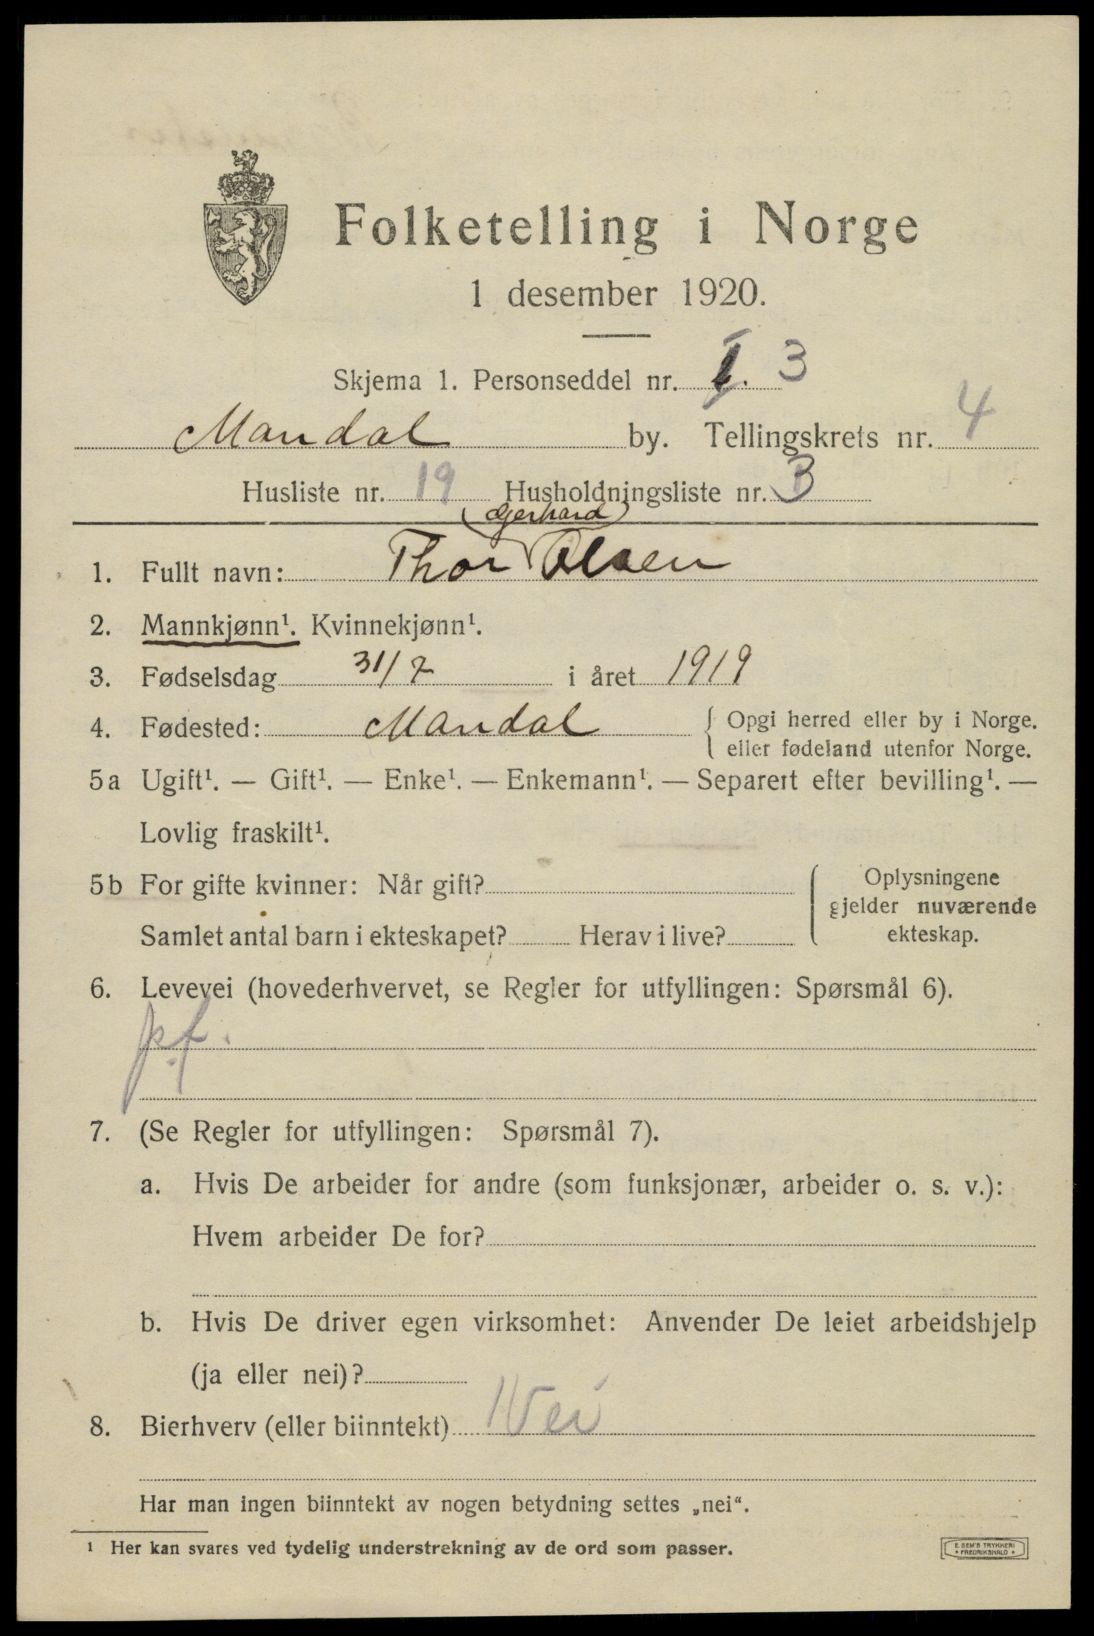 Folketelling i Norge
1 desember 1920.
Skjema 1. Personseddel nr. 3
Mandal by. Tellingskrets nr. 4
Husliste nr. 19 Husholdningsliste nr. 3
(Gerhard)
1. Fullt navn: Thor Olsen
2. Mannkjønn¹. Kvinnekjønn¹.
3. Fødselsdag 31/7 i året 1919
4. Fødested: Mandal { Opgi herred eller by i Norge.
eller fødeland utenfor Norge.
5a Ugift¹. — Gift¹. — Enke¹. — Enkemann¹. — Separert efter bevilling¹. —
Lovlig fraskilt¹.
5b For gifte kvinner: Når gift? { Oplysningene
gjelder nuværende
Samlet antal barn i ekteskapet? Herav i live? ekteskap.
6. Levevei (hovederhvervet, se Regler for utfyllingen: Spørsmål 6).
p.f.
7. (Se Regler for utfyllingen: Spørsmål 7).
a. Hvis De arbeider for andre (som funksjonær, arbeider o. s. v.):
Hvem arbeider De for?
b. Hvis De driver egen virksomhet: Anvender De leiet arbeidshjelp
(ja eller nei)?
8. Bierhverv (eller biinntekt) Nei
Har man ingen biinntekt av nogen betydning settes „nei“.
¹ Her kan svares ved tydelig understrekning av de ord som passer.
E. SEM'S TRYKKERI
• FREDRIKSHALD •